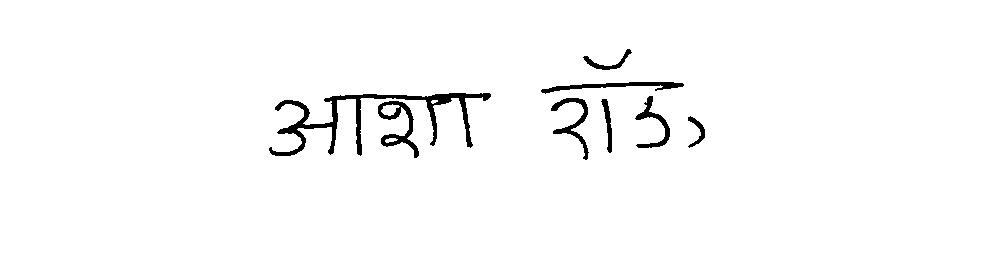 आशा रॉड,